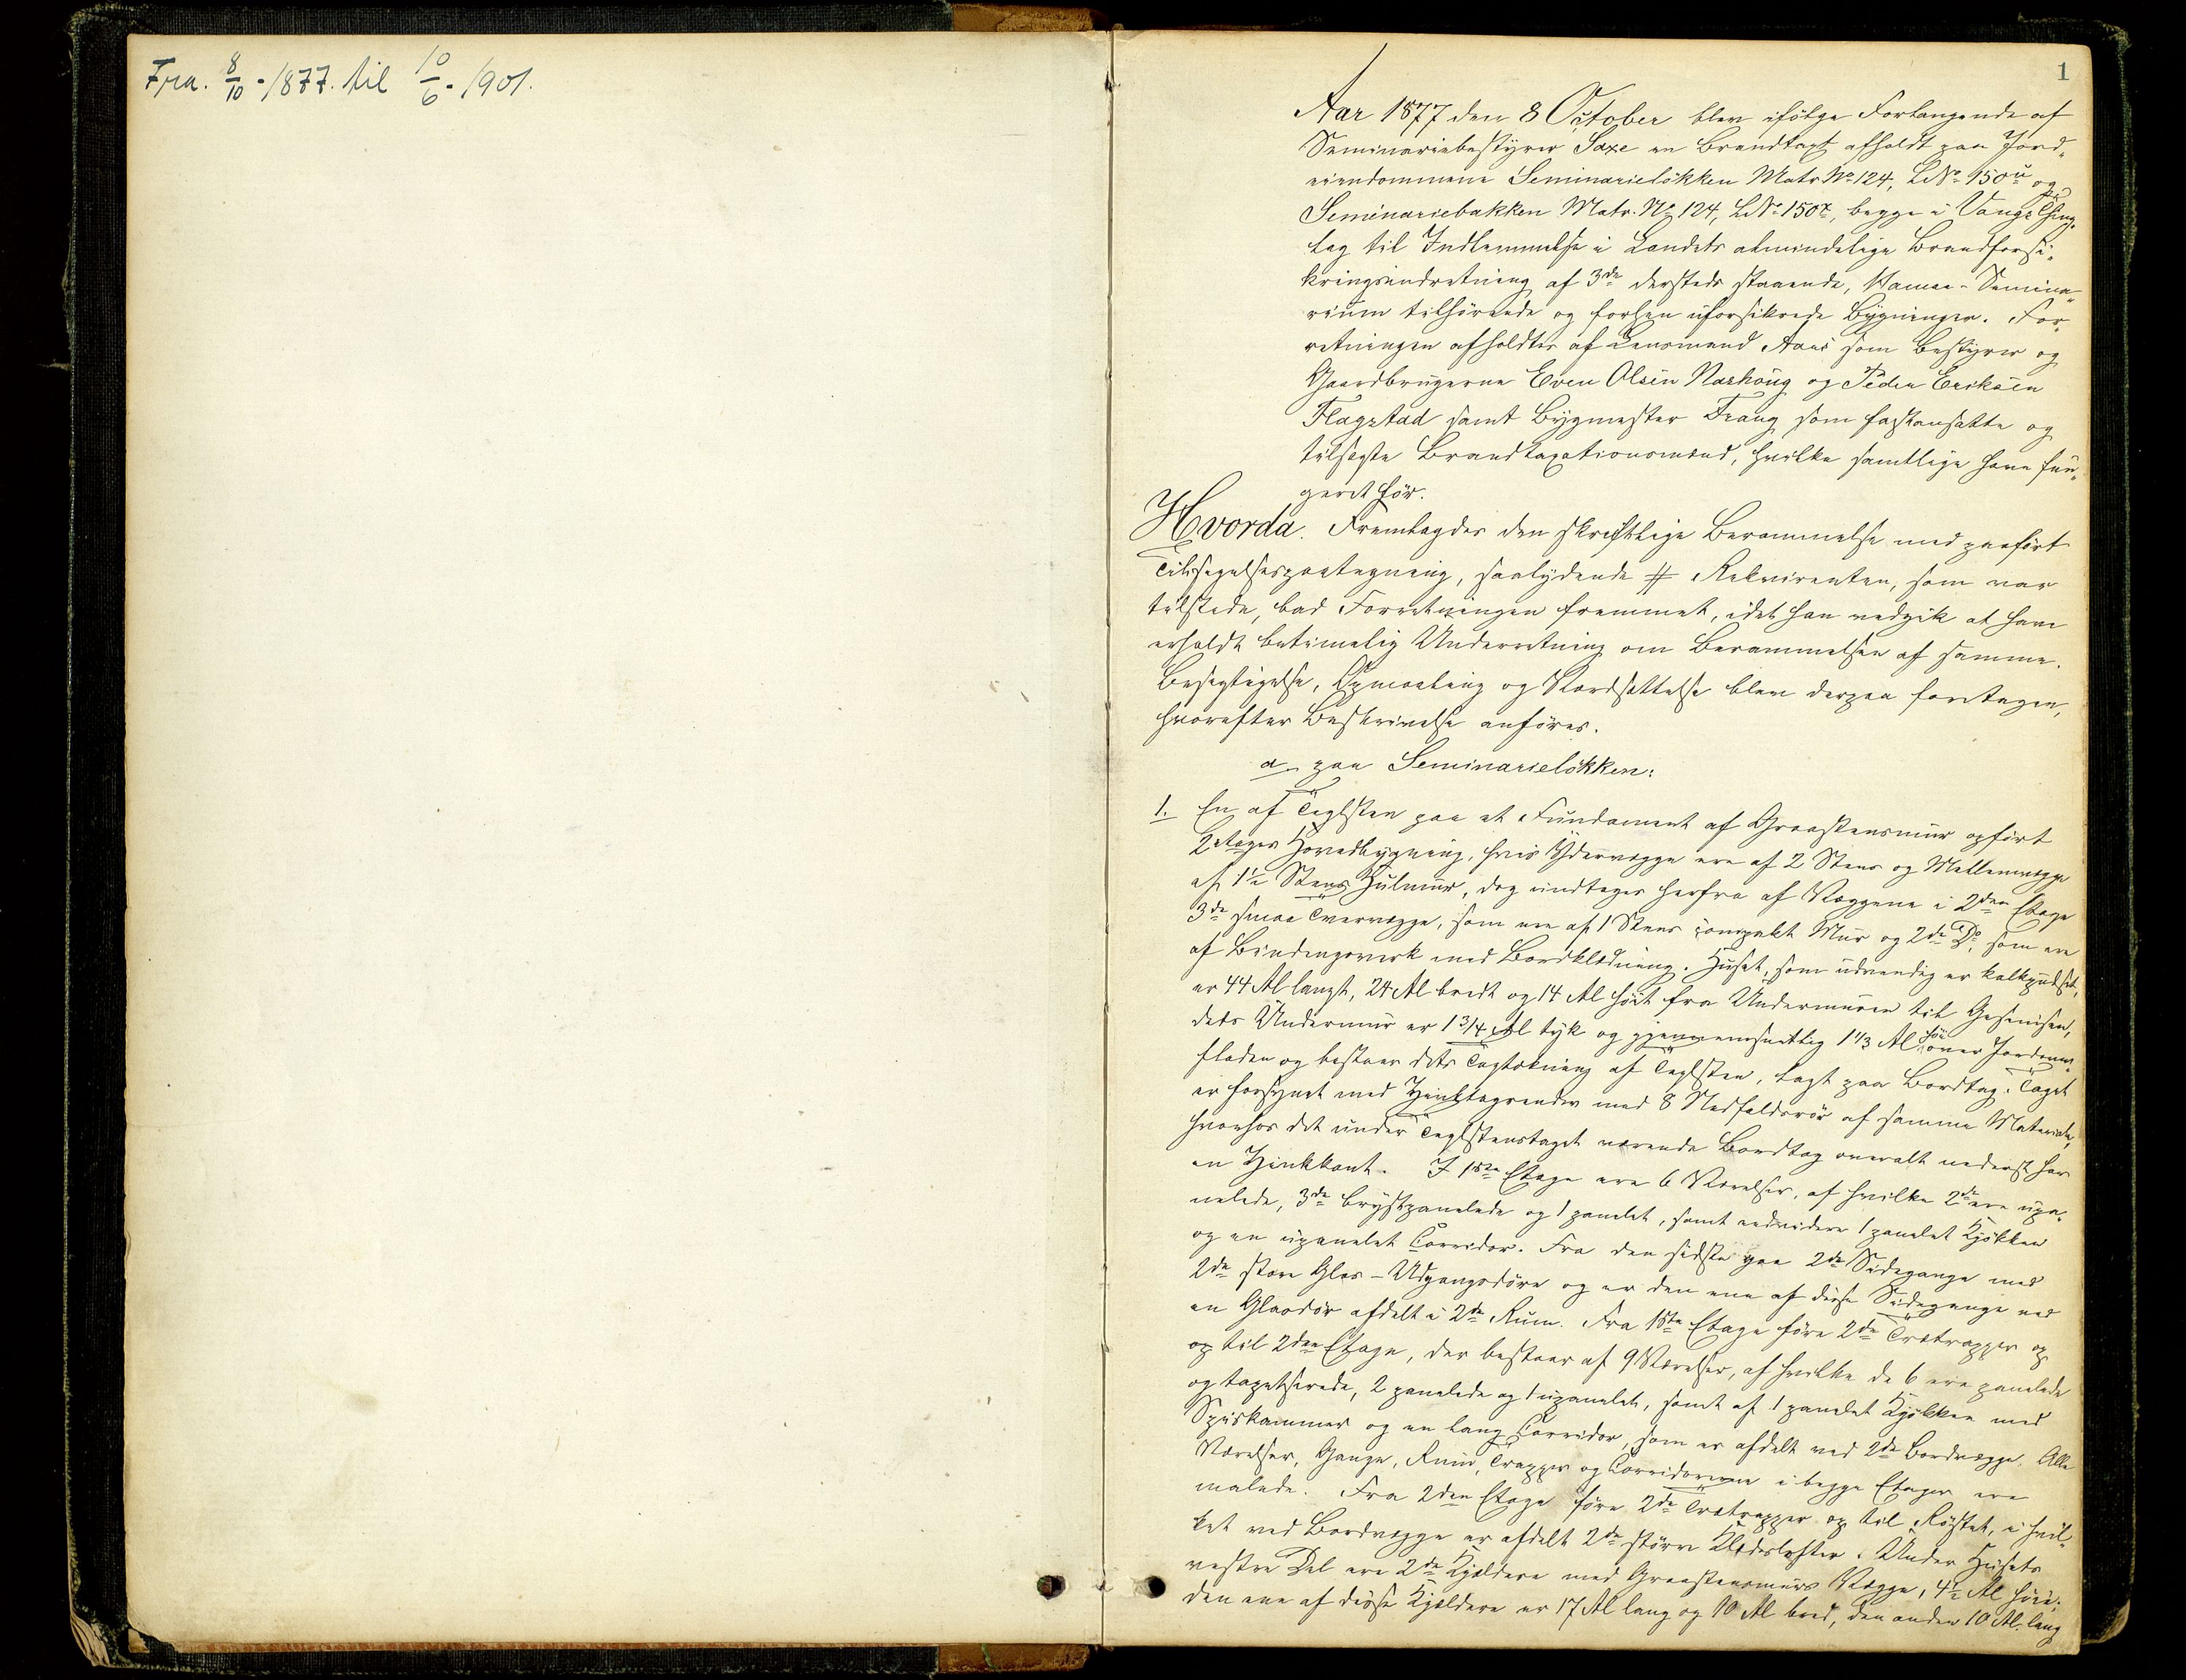 Fra. 8/10 - 1877. til 10/6 - 1901.
1
Aar 1877 den 8 October blev ifölge Forlangende af
Seminariebestyrer Saxe en Brandtaxt afholdt paa Jord„
eiendommene Seminarielökken Matr. No 124, LNo 150u og
Seminariebakken Matr. No 124, LNo 150x, begge i Vangs Thing„
lag til Indlemmelse i Landets almindelige Brandforsi„
kringsindretning af 3de dersteds staaende, Hamar-Semina„
rium tilhörende og forhen uforsikrede Bygninger. For„
retningen afholdtes af Lensmand Aas som Bestyrer og
Gaardbrugerne Even Olsen Narhoug og Peder Eriksen
Flagstad samt Bygmester Frang som fastansatte og
tilsagte Brandtaxationsmænd, hvilke samtlige have fun„
geret för.
Hvorda. Fremlagdes den skriftlige Berammelse med paafört
Tilsigelsespaategning, saalydende # Rekvirenten, som var
tilstede, bad Forretningen fremmet, idet han vedgik at have
erholdt betimelig Underretning om Berammelsen af samme.
Besigtigelse, Opmaaling og Værdsættelse blev derpaa foretagen,
hvorefter Beskrivelse anföres.
a. paa Seminarielökken:
1. En af Teglsten paa et Fundament af Graastensmur opfört
2 Etages Hovedbygning, hvis Ydervægge ere af 2 Stens og Mellemvægge
af 1½ Stens Hulmur, dog undtages herfra af Væggene i 2den Etage
3de smaa Tvervægge, som ere af 1 Stens compakt Mur og 2de Do, som ere
af Bindingsverk med Bordklædning. Huset, som udvendig er kalkpudset,
er 44 Al langt, 24 Al bredt og 14 Al höit fra Undermuren til Gesimsen,
dets Undermur er 1 3/4 Al tyk og gjennemsnitlig 1 1/3 Al höi over Jordover„
fladen og bestaar dets Tagtækning af Teglsten, lagt paa Bordtag. Taget
er forsynet med Zinktagrender med 8 Nedfaldsrör af samme Materiale,
hvorhos det under Teglstenstaget værende Bordtag overalt nederst har
en Zinkkant. I 1ste Etage ere 6 Værelser, af hvilke 2de ere upa„
nelede, 3de brystpanelede og 1 panelet, samt endvidere 1 panelet Kjökken
og en upanelet Corridor. Fra den sidste gaa 2de Sidegange med
2de store Glas-Udgangsdöre og er den ene af disse Sidegange ved
en Glasdör afdelt i 2de Rum. Fra 1ste Etage före 2de Trætrapper op
op til 2den Etage, der bestaar af 9 Værelser, af hvilke de 6 ere panelede
og tapetserede, 2 panelede og 1 upanelet, samt af 1 panelet Kjökken med
Spiskammer og en lang Corridor, som er afdelt ved 2de Bordvægge. Alle
Værelser, Gange, Rum, Trapper og Corridorerne i begge Etager ere
malede. Fra 2den Etage före 2de Trætrapper op til Röstet, i hvil„
ket ved Bordvægge er afdelt 2de större Klædeslofter. Under Husets
vestre Del ere 2de Kjeldere med Graastensmurs Vægge, 4½ Al höie;
den ene af disse Kjeldere er 17 Al lang og 10 Al bred, den anden 10 Al. lang